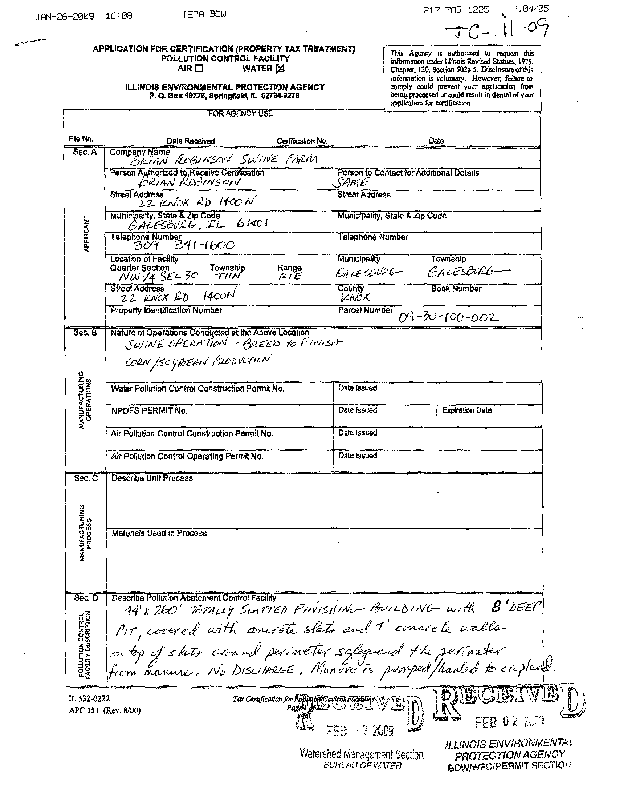 JAN-26-2009 16:08 IEPA BOW 217 P.04/05
TC-11-09
APPLICATION FOR CERTIFICATION (PROPERTY TAX TREATMENT)
POLLUTION CONTROL FACILITY
AIR ☐ WATER ☒
ILLINOIS ENVIRONMENTAL PROTECTION AGENCY
P. O. Box 19276, Springfield, IL 62794-9276
This Agency is authorized to request this
information under Illinois Revised Statutes, 1979,
Chapter 120, Section 502a-5. Disclosure of this
information is voluntary. However, failure to
comply could prevent your application from
being processed or could result in denial of your
application for certification.
FOR AGENCY USE
File No. Date Received Certification No. Date
Sec. A Company Name
BRIAN ROBINSON SWINE FARM
Person Authorized to Receive Certification Person to Contact for Additional Details
BRIAN ROBINSON SAME
Street Address Street Address
22 KNOX RD 1400N
Municipality, State & Zip Code Municipality, State & Zip Code
GALESBURG, IL 61401
Telephone Number Telephone Number
309 341-1600
APPLICANT
Location of Facility Municipality Township
Quarter Section Township Range
NW 1/4 SEC 30 T11N R1E GALESBURG GALESBURG
Street Address County Book Number
22 KNOX RD 1400N KNOX
Property Identification Number Parcel Number 09-30-100-002
Sec. B Nature of Operations Conducted at the Above Location
SWINE OPERATION - BREED TO FINISH
CORN/SOYBEAN PRODUCTION
MANUFACTURING OPERATIONS
Water Pollution Control Construction Permit No. Date Issued
NPDES PERMIT No. Date Issued Expiration Date
Air Pollution Control Construction Permit No. Date Issued
Air Pollution Control Operating Permit No. Date Issued
Sec. C Describe Unit Process
MANUFACTURING PROCESS
Materials Used in Process
Sec. D Describe Pollution Abatement Control Facility
POLLUTION CONTROL FACILITY DESCRIPTION
44' x 260' TOTALLY SLATTED FINISHING BUILDING with 8' DEEP
PIT, covered with concrete slats and 1' concrete walls
on top of slats around perimeter safeguard the perimeter
from manure. NO DISCHARGE. Manure is pumped/hauled to cropland.
IL 532-0222
APC 151 (Rev. 8/00)
Tax Certification for Pollution Control Facilities
Page
RECEIVED
FEB 2009
Watershed Management Section
BUREAU OF WATER
RECEIVED
FEB 02 2009
ILLINOIS ENVIRONMENTAL
PROTECTION AGENCY
BOW/WPC/PERMIT SECTION